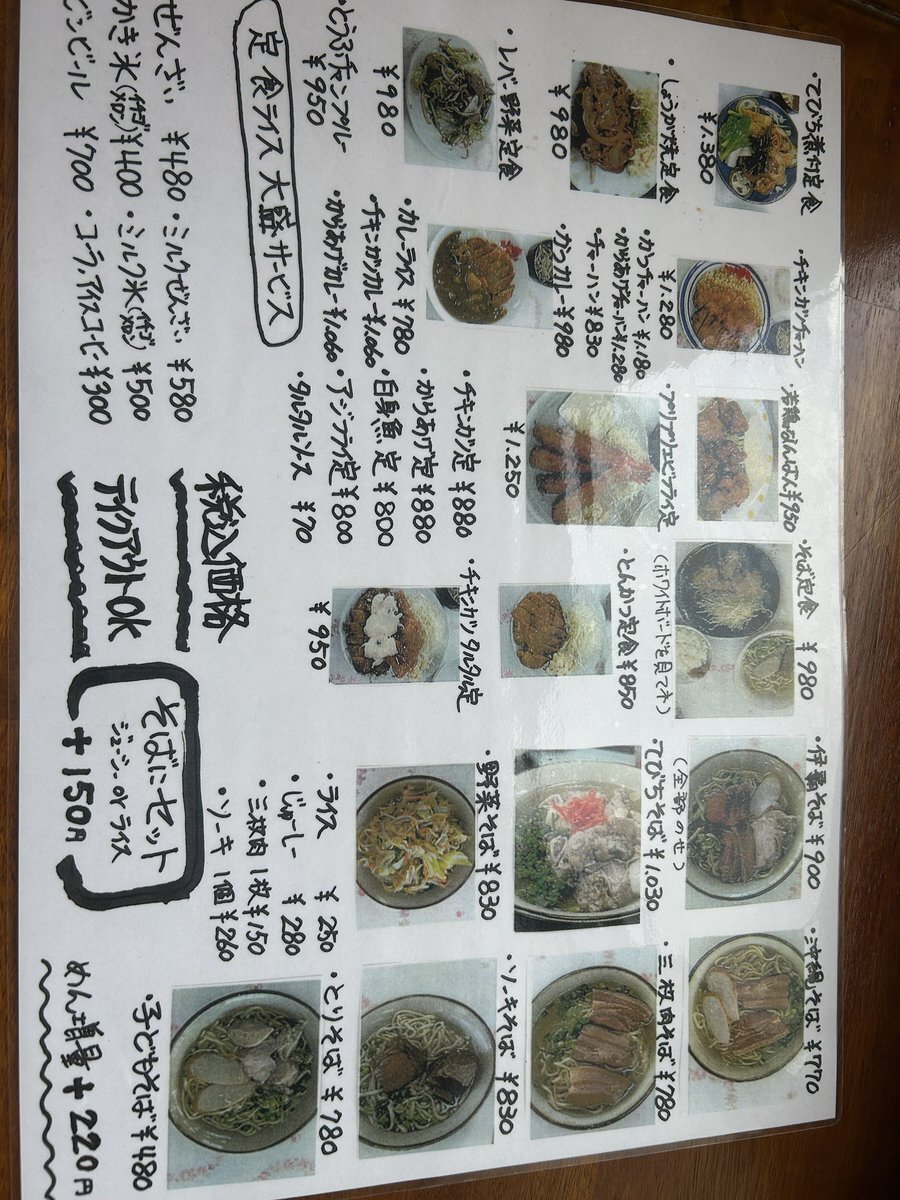 ・てびち煮付定食
¥1.380
・しょうが焼定食
¥980
・レバー野菜定食
¥980
・とうふチャンプルー
¥950
定食ライス大盛サービス
・チキンカツチャーハン
¥1.280
・かつチャーハン¥1.180
・からあげチャーハン¥1.280
・チャーハン¥830
・カツカレー¥980
・カレーライス¥780
・チキンカツカレー¥1.060
・からあげカレー¥1.060
・若鶏なんばん¥950
・プリプリエビフライ定
¥1.250
・チキンカツ定¥880
・からあげ定¥880
・白身魚定¥800
・アジフライ定¥800
・タルタルソース ¥70
・そば定食 ¥980
(ホワイトボードを見てネ)
・とんかつ定食¥850
・チキンカツタルタル定
¥950
・伊覇そば¥900
(全部のせ)
・てびちそば¥1.030
・野菜そば¥830
・ライス ¥250
・じゅーしー ¥280
・三枚肉1枚¥150
・ソーキ1個¥260
・沖縄そば¥770
・三枚肉そば¥780
・ソーキそば¥830
・とりそば¥780
・子どもそば¥480
めん増量+220円
ぜんざい ¥480・ミルクぜんざい¥580
かき氷 ¥400・ミルク氷 ¥500
ビンビール ¥700・コーラ、アイスコーヒー¥300
税込価格
テイクアウトOK
そばにセット
ジューシーorライス
+150円